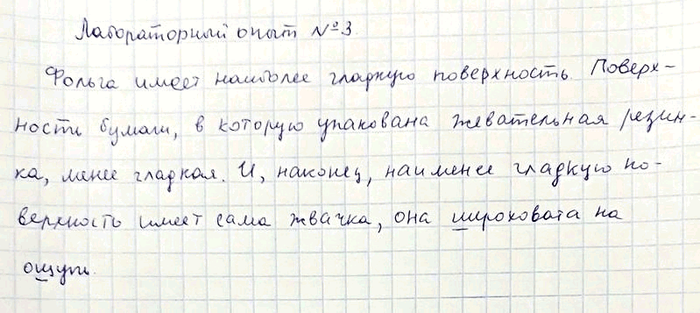 Лабораторный опыт №3
Фольга имеет наиболее гладкую поверхность. Поверх-
ность бумаги, в которую упакована жевательная резин-
ка, менее гладкая. И, наконец, наименее гладкую по-
верхность имеет сама жвачка, она шероховата на
ощупь.